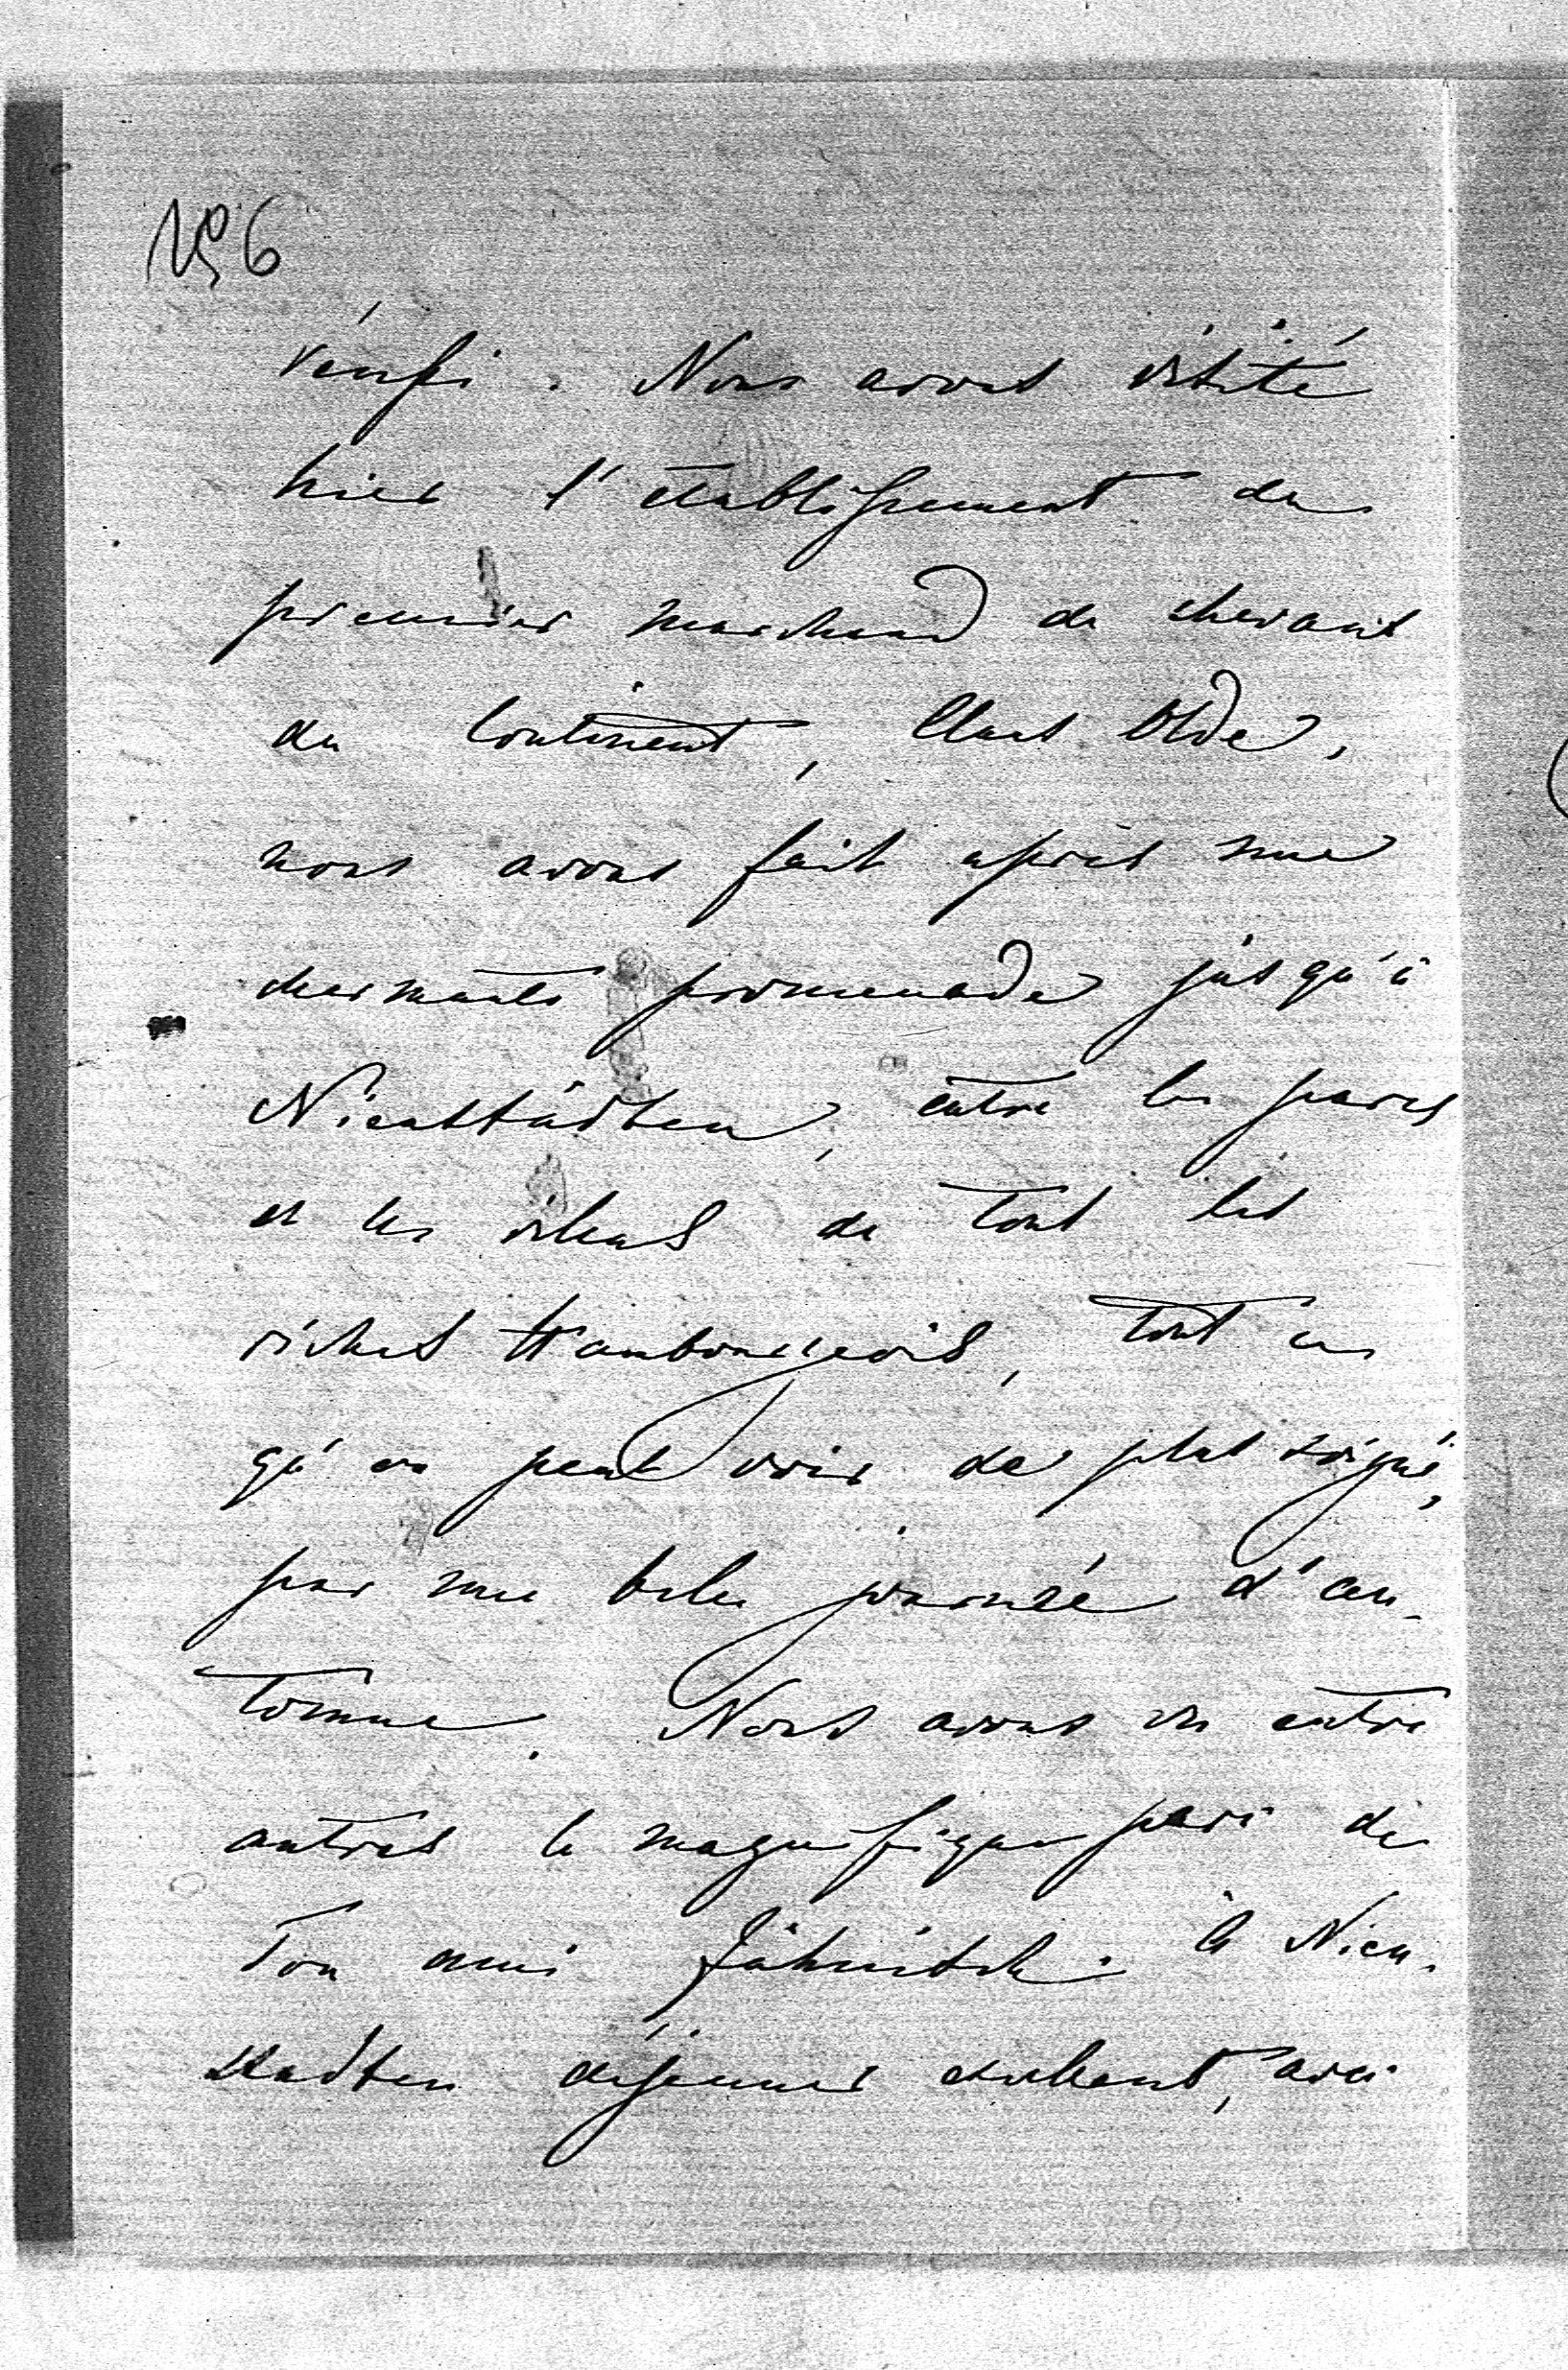 № 6
réussi. Nous avons visité
hier l'établissement du
premier marchand de chevaux
du Continent, Claus Olde,
nous avons fait après une
charmante promenade jusqu'à
Nienstädten, entre les parcs
et les villas de tout les
riches Hambourgeois, tout ce
qu'on peut voir de plus soigné,
par une belle journée d'au-
tomne. Nous avons vu entre
autres le magnifique parc de
Ton ami Jähnitsch. A Nien-
stadten déjeuner excellent, avec